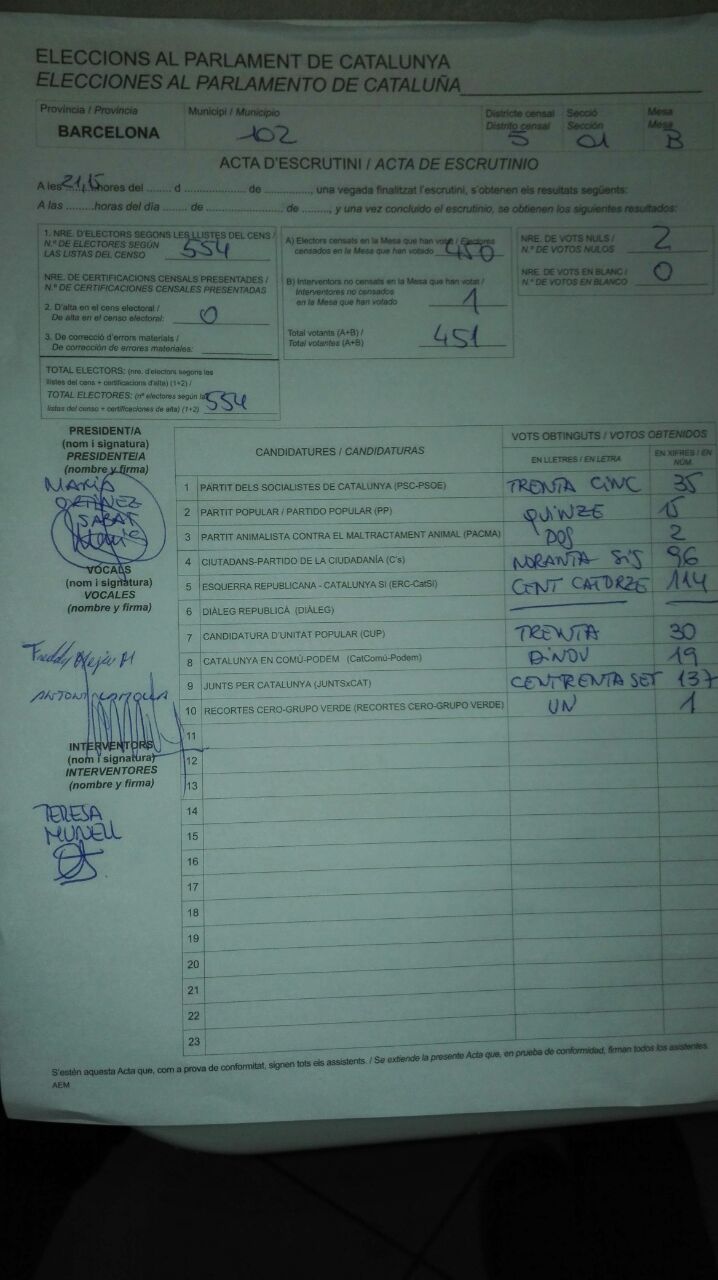 ELECCIONS AL PARLAMENT DE CATALUNYA
ELECCIONES AL PARLAMENTO DE CATALUÑA
Província / Provincia
BARCELONA
Municipi / Municipio
102
Districte censal
Distrito censal
5
Secció
Sección
01
Mesa
Mesa
B
ACTA D'ESCRUTINI / ACTA DE ESCRUTINIO
A les 21,15 hores del ........ d ..................... de ............, una vegada finalitzat l'escrutini, s'obtenen els resultats següents:
A las .........horas del día ...... de ..................... de ........, y una vez concluido el escrutinio, se obtienen los siguientes resultados:
1. NRE. D'ELECTORS SEGONS LES LLISTES DEL CENS /
N.º DE ELECTORES SEGÚN
LAS LISTAS DEL CENSO
554
NRE. DE CERTIFICACIONS CENSALS PRESENTADES /
N.º DE CERTIFICACIONES CENSALES PRESENTADAS
2. D'alta en el cens electoral /
De alta en el censo electoral:
0
3. De correcció d'errors materials /
De corrección de errores materiales:
TOTAL ELECTORS: (nre. d'electors segons les
llistes del cens + certificacions d'alta) (1+2) /
TOTAL ELECTORES: (nº electores según las
listas del censo + certificaciones de alta) (1+2)
554
A) Electors censats en la Mesa que han votat / Electores
censados en la Mesa que han votado
450
B) Interventors no censats en la Mesa que han votat /
Interventores no censados
en la Mesa que han votado
1
Total votants (A+B) /
Total votantes (A+B)
451
NRE. DE VOTS NULS /
N.º DE VOTOS NULOS
2
NRE. DE VOTS EN BLANC /
N.º DE VOTOS EN BLANCO
0
PRESIDENT/A
(nom i signatura)
PRESIDENTE/A
(nombre y firma)
MARÍA
SABAT
VOCALS
(nom i signatura)
VOCALES
(nombre y firma)
Freddy
ANTONI
INTERVENTORS
(nom i signatura)
INTERVENTORES
(nombre y firma)
TERESA
MUNELL
CANDIDATURES / CANDIDATURAS
VOTS OBTINGUTS / VOTOS OBTENIDOS
EN LLETRES / EN LETRA
EN XIFRES / EN NÚM.
1 PARTIT DELS SOCIALISTES DE CATALUNYA (PSC-PSOE) TRENTA CINC 35
2 PARTIT POPULAR / PARTIDO POPULAR (PP) QUINZE 15
3 PARTIT ANIMALISTA CONTRA EL MALTRACTAMENT ANIMAL (PACMA) DOS 2
4 CIUTADANS-PARTIDO DE LA CIUDADANÍA (C's) NORANTA SIS 96
5 ESQUERRA REPUBLICANA - CATALUNYA SI (ERC-CatSI) CENT CATORZE 114
6 DIÀLEG REPUBLICÀ (DIÀLEG)
7 CANDIDATURA D'UNITAT POPULAR (CUP) TRENTA 30
8 CATALUNYA EN COMÚ-PODEM (CatComú-Podem) DINOU 19
9 JUNTS PER CATALUNYA (JUNTSxCAT) CENTRENTA SET 137
10 RECORTES CERO-GRUPO VERDE (RECORTES CERO-GRUPO VERDE) UN 1
11
12
13
14
15
16
17
18
19
20
21
22
23
S'estén aquesta Acta que, com a prova de conformitat, signen tots els assistents. / Se extiende la presente Acta que, en prueba de conformidad, firman todos los asistentes.
AEM